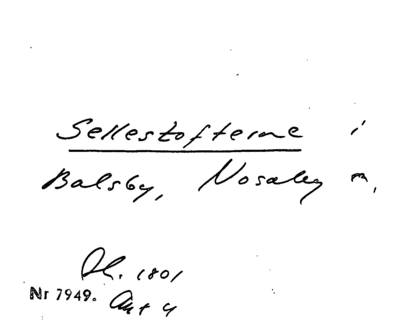 Sellestofterne i
Balsby, Nosaby m,
Ph. 1801
Nr 7949. Ant 4